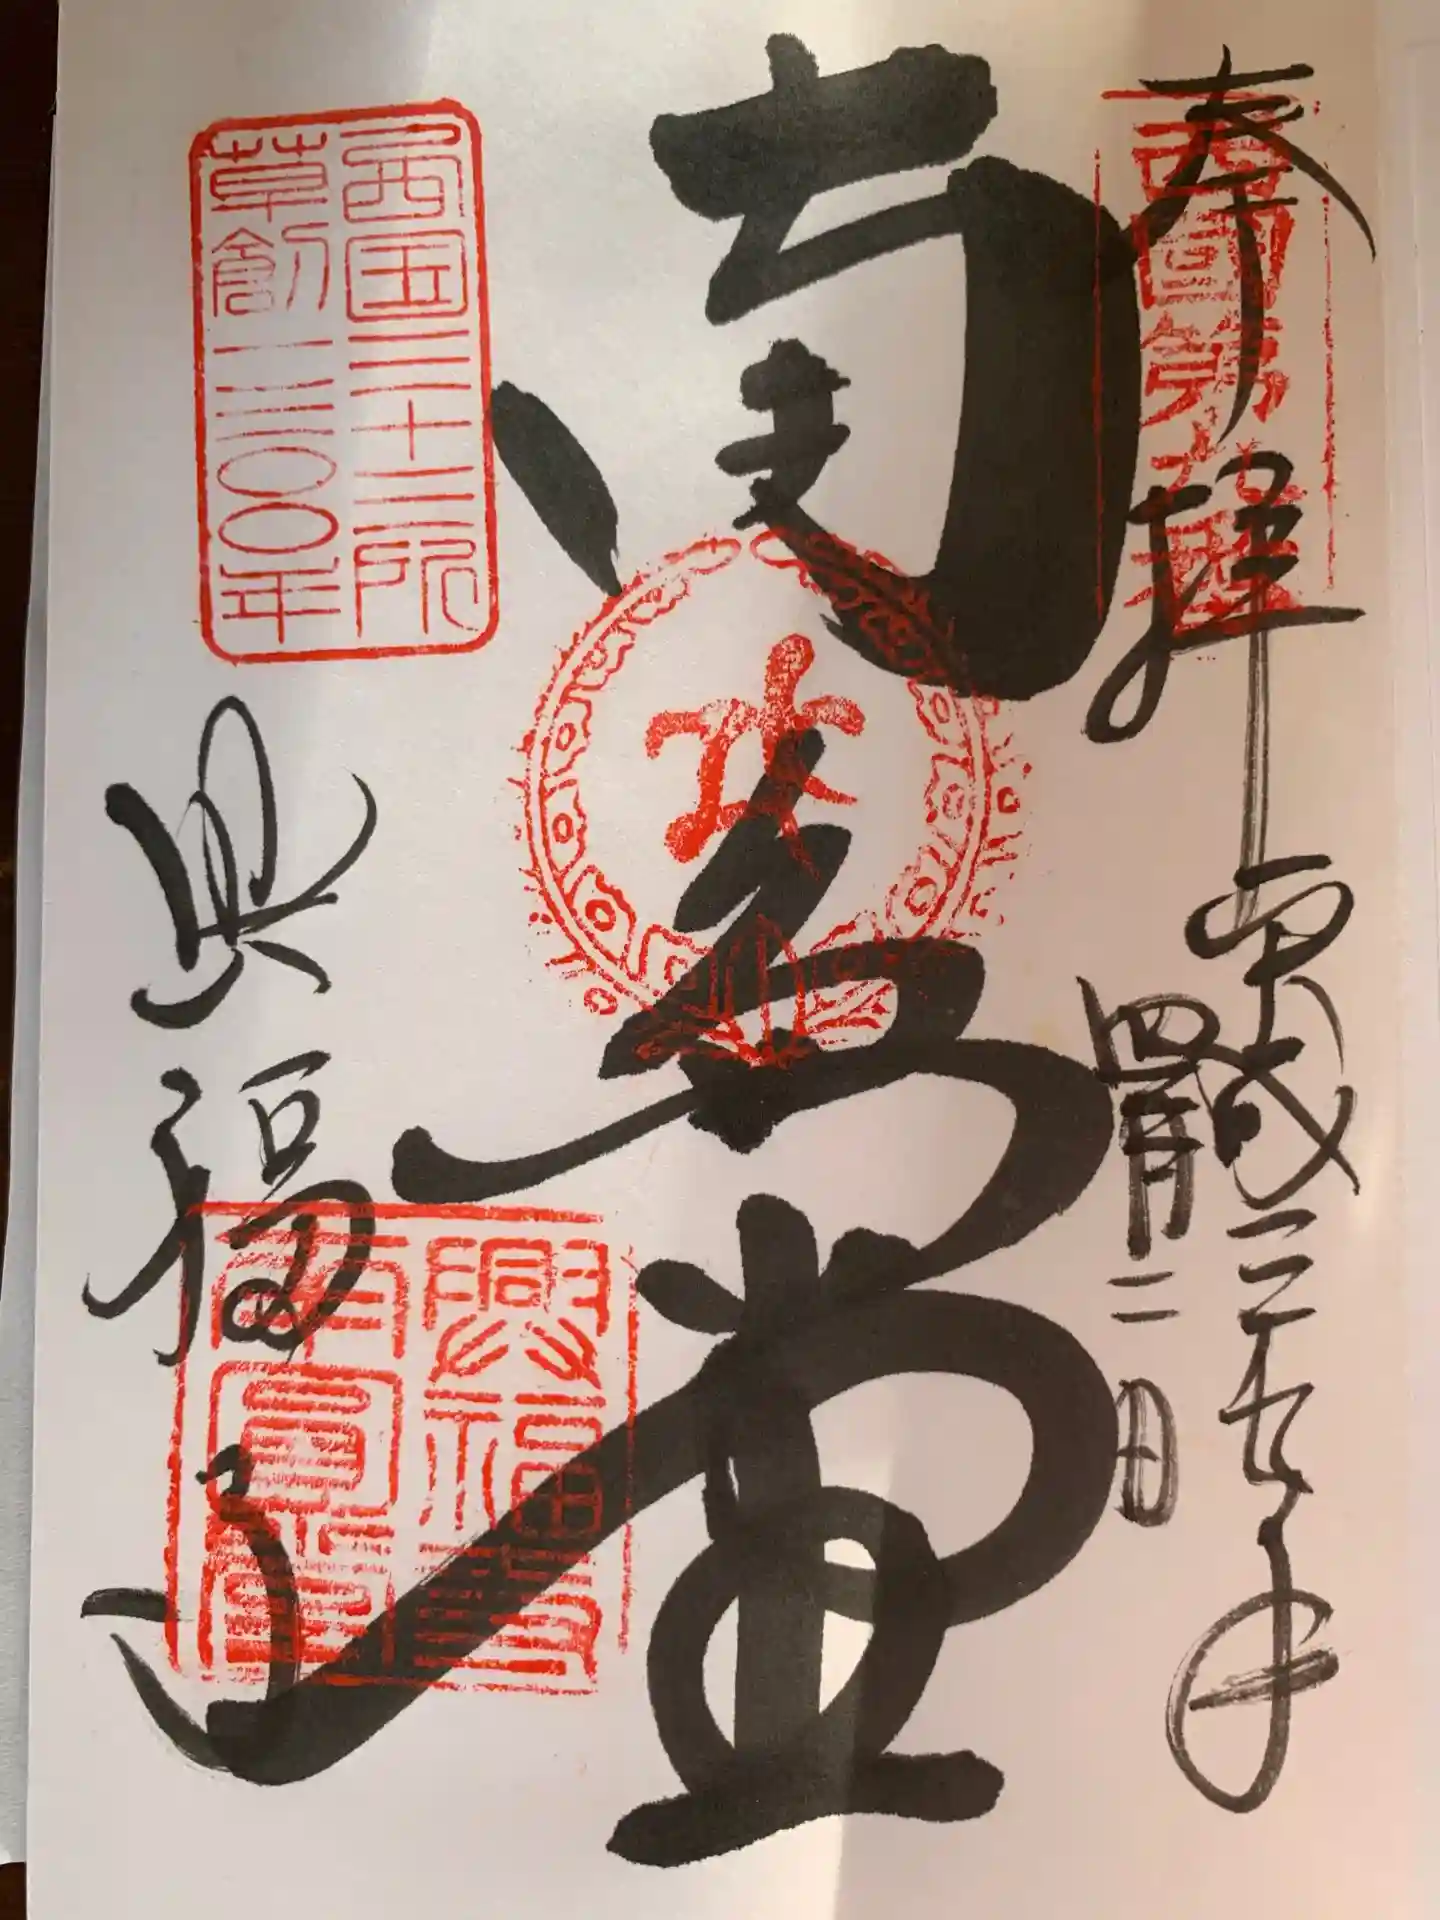 奉拝
西國第九番
平成二十九年
四月二日
南圓堂
西国三十三所
草創一三〇〇年
興福寺
興福寺
南圓堂